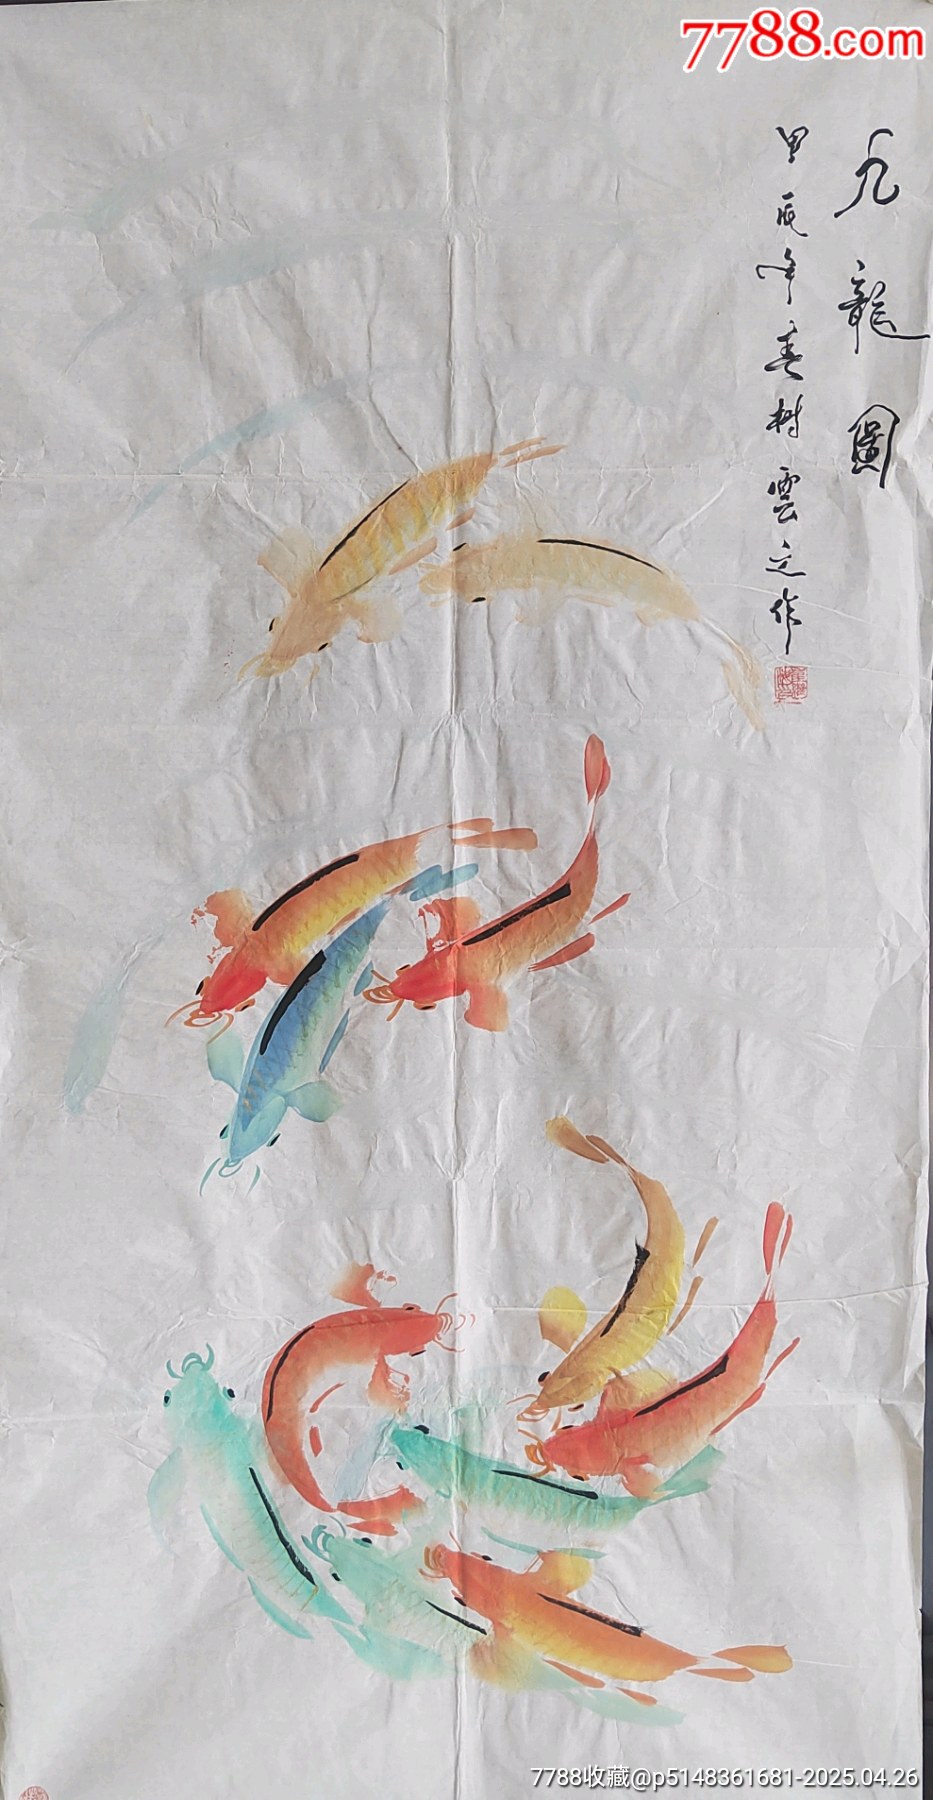 7788.com
九龍圖
甲辰年春樹雲之作
7788收藏@p5148361681-2025.04.26